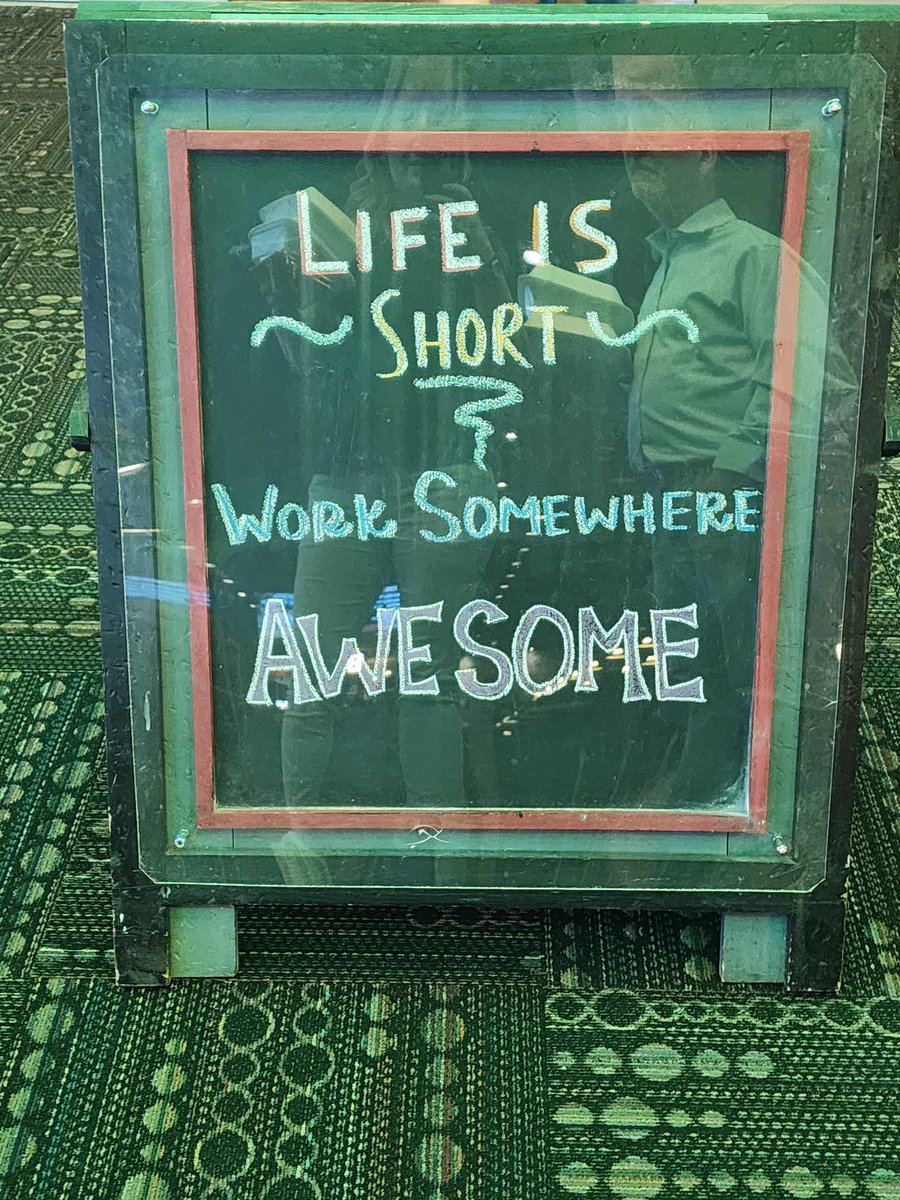 LIFE IS
SHORT
WORK SOMEWHERE
AWESOME